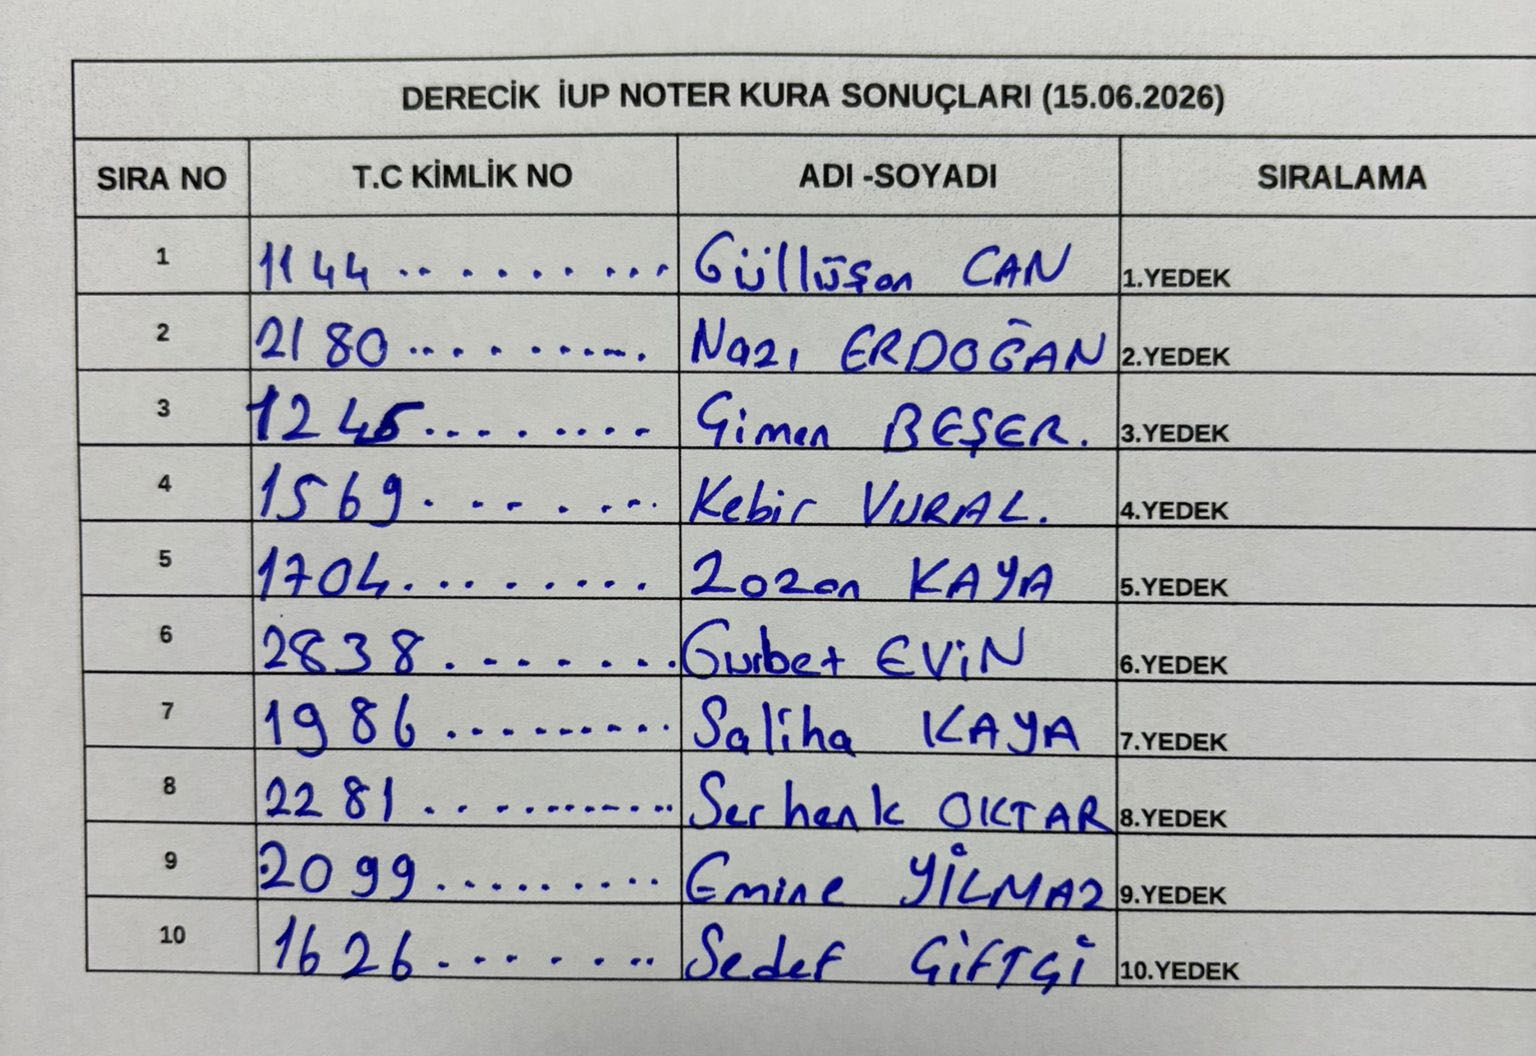 DERECİK İUP NOTER KURA SONUÇLARI (15.06.2026)
SIRA NO T.C KİMLİK NO ADI -SOYADI SIRALAMA
1 1144 .. . . . . . . ... Güllüşan CAN 1.YEDEK
2 2180 ... . . ...... Nazı ERDOĞAN 2.YEDEK
3 1245......... Gimen BEŞER. 3.YEDEK
4 1569. . . . . ... Kebir VURAL. 4.YEDEK
5 1704......... Zozan KAYA 5.YEDEK
6 2838 ......... Gurbet EVİN 6.YEDEK
7 1986 .......... Saliha KAYA 7.YEDEK
8 2281 ............ Serhenk OKTAR 8.YEDEK
9 2099 .......... Emine YİLMAZ 9.YEDEK
10 1626........ Sedef ÇİFTÇİ 10.YEDEK